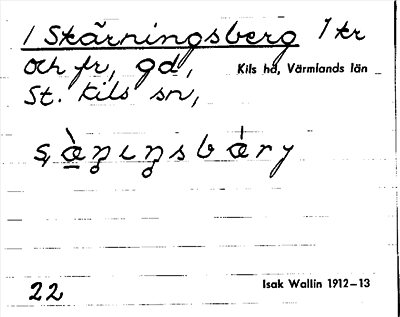 1 Skärningsberg 1 kr
och fr, gd, Kils hd, Värmlands län
St. Kils sn,
22 Isak Wallin 1912–13